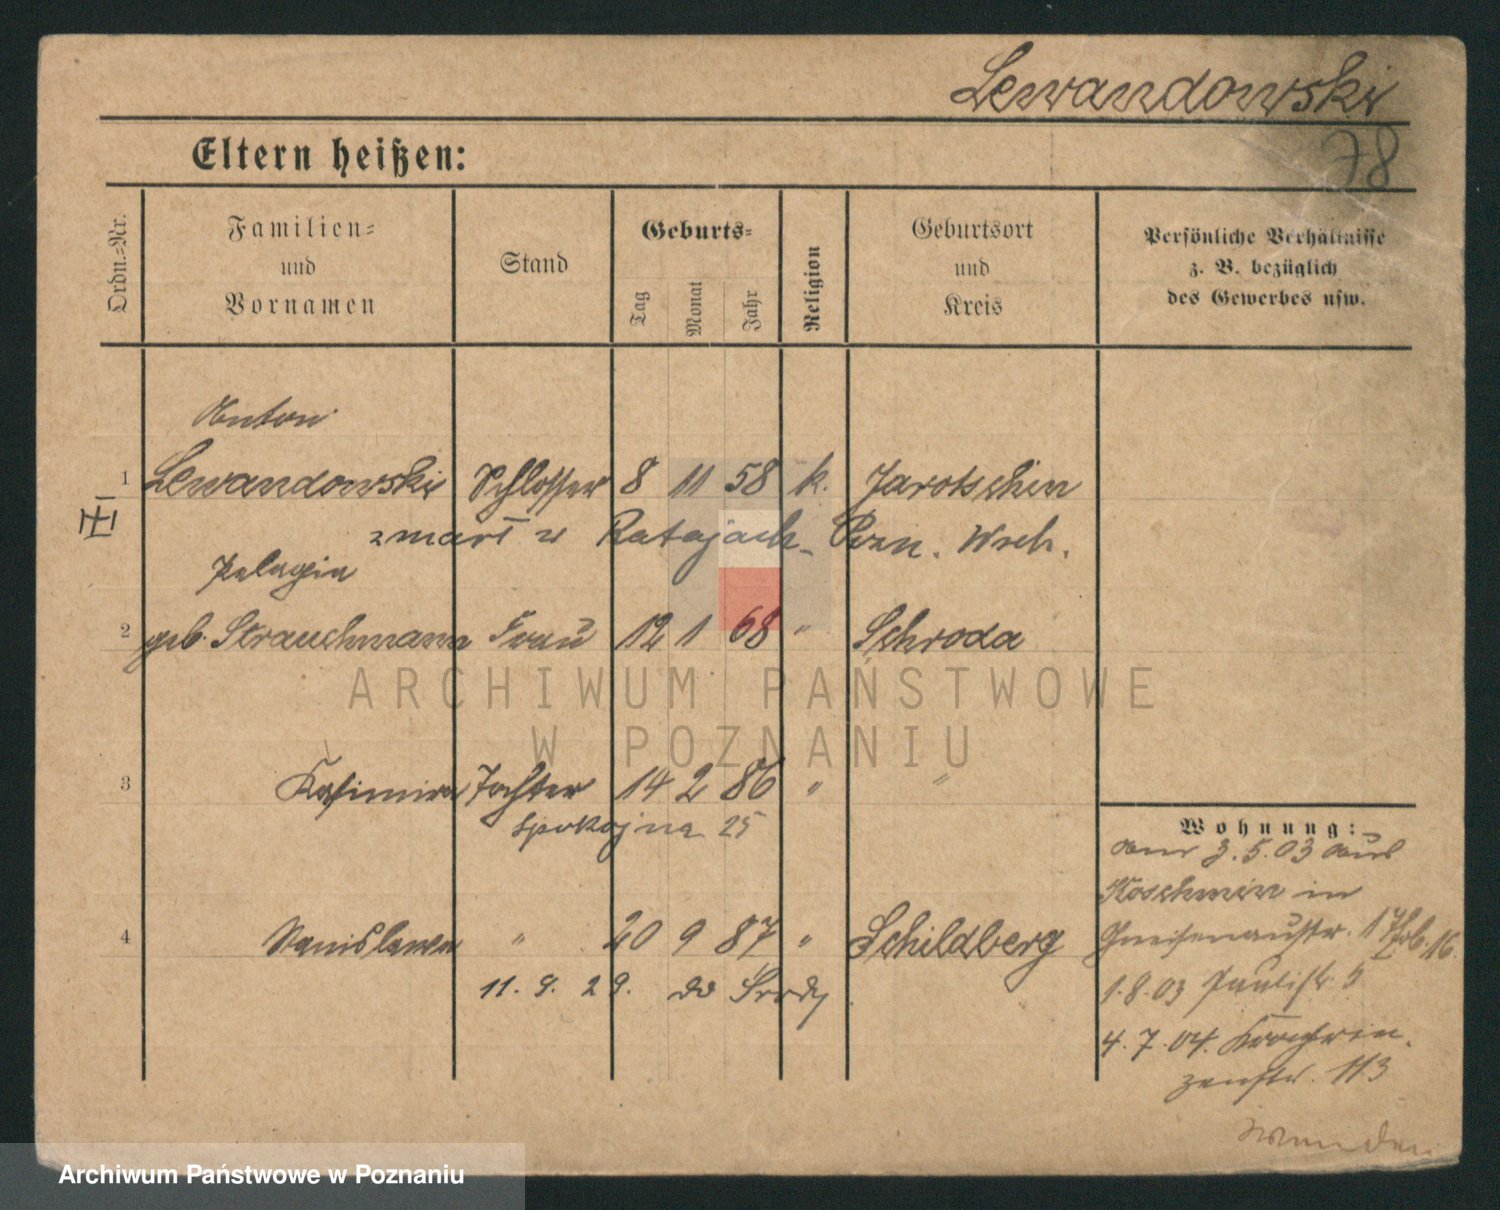 Lewandowski
78
Eltern heißen:
Ordn.-Nr.
Familien- und Vornamen
Stand
Geburts-
Tag
Monat
Jahr
Religion
Geburtsort und Kreis
Persönliche Verhältnisse
z. B. bezüglich
des Gewerbes usw.
Anton
1 Lewandowski Schlosser 8 11 58 k. Jarotschin
zmarł w Ratajach Pozn. Wsch.
Pelagia
2 geb. Strauchmann Frau 12 1 68 " Schroda
ARCHIWUM PAŃSTWOWE
W POZNANIU
3 Kasimira Tochter 14 2 86 " "
Spokojna 25
4 Stanislawa " 20 9 87 " Schildberg
11. 9. 29. do Środy
Wohnung:
am 3.5.03 aus
Koschmin in
Gneisenaustr. 1
1.8.03 Paulistr. 5
4.7.04. Kronprin-
zenstr. 113
wenden
Archiwum Państwowe w Poznaniu